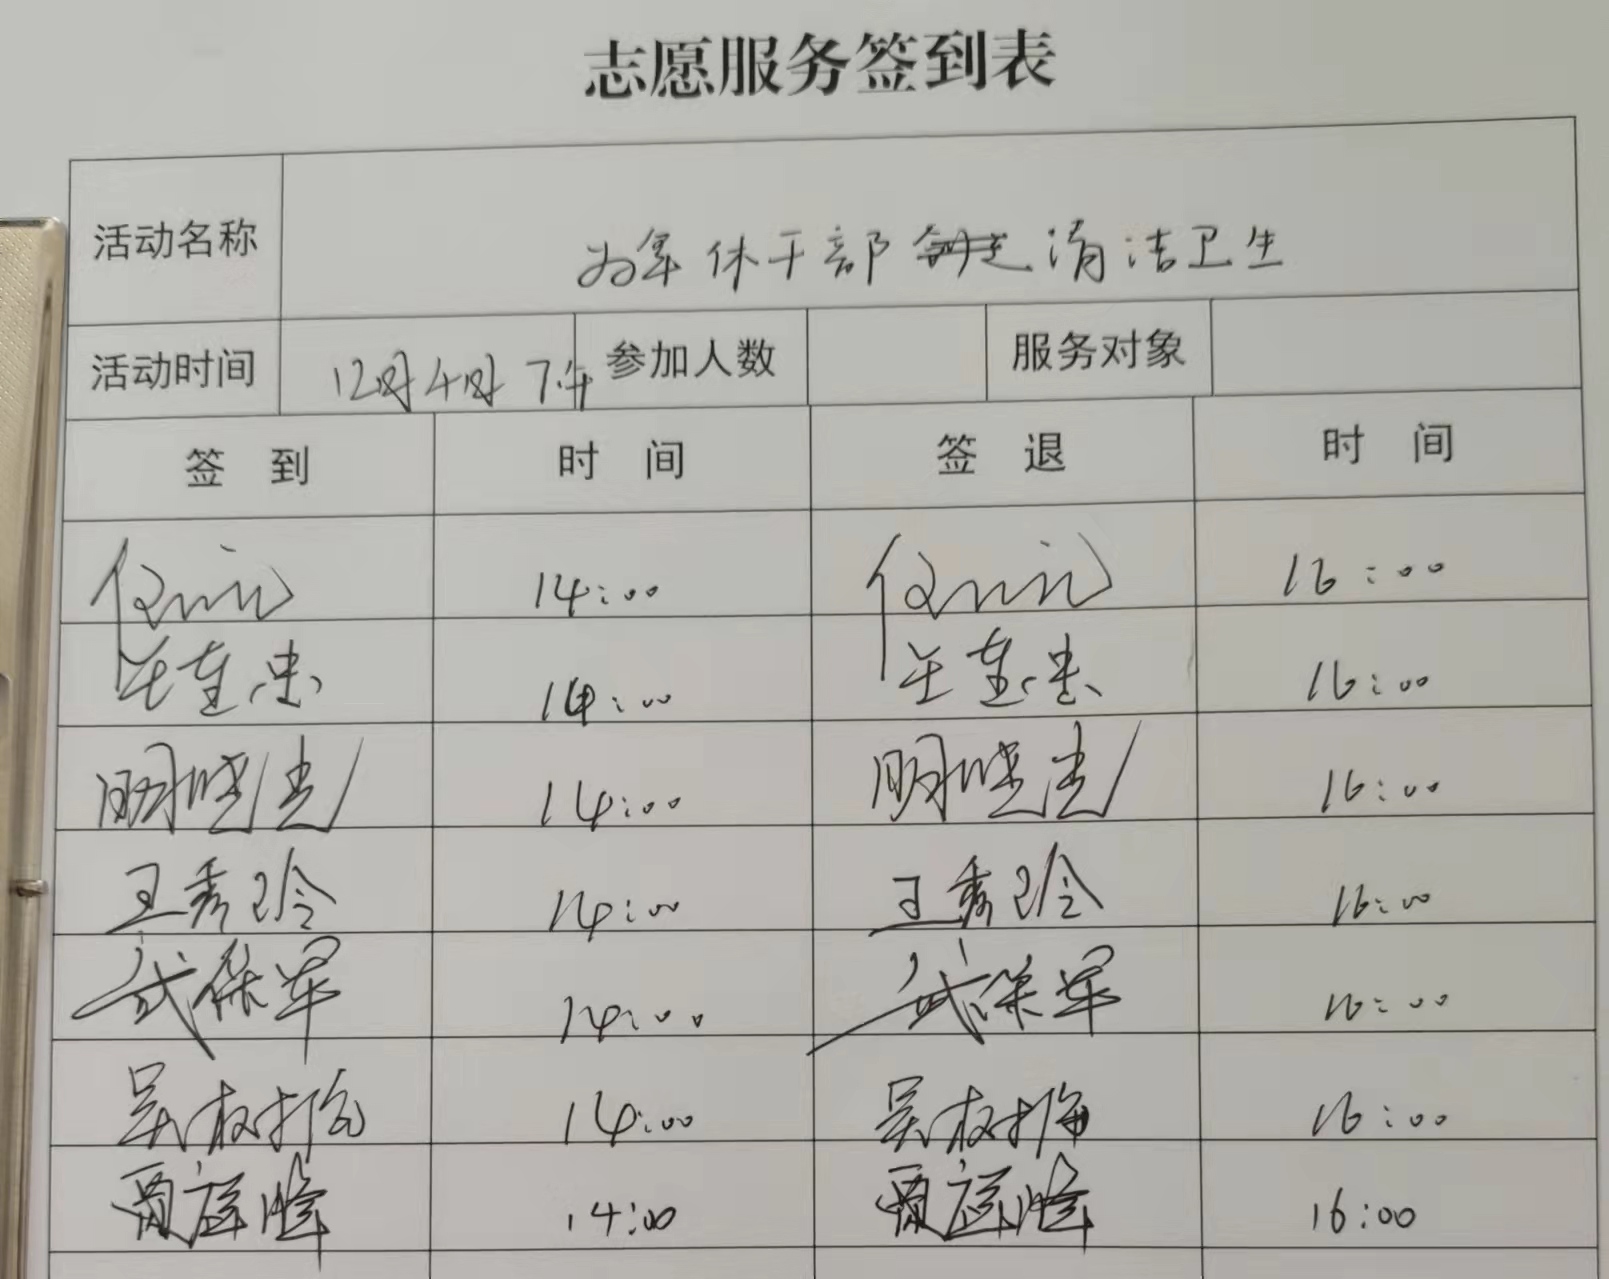 志愿服务签到表
活动名称 为军休干部 清洁卫生
活动时间 12月4日 下午 参加人数 服务对象
签 到 时 间 签 退 时 间
14:00 16:00
14:00 16:00
明晓杰 14:00 明晓杰 16:00
王秀玲 14:00 王秀玲 16:00
武保军 14:00 武保军 16:00
吴 14:00 吴 16:00
贾庭峰 14:00 贾庭峰 16:00